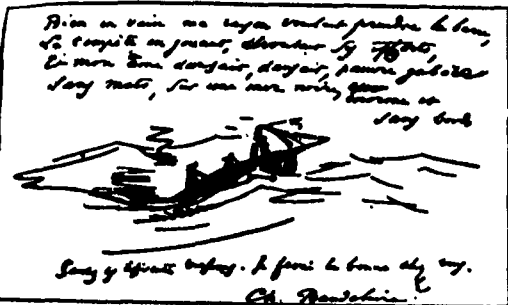 Bien en vain ma raison voulait prendre la barre,
La tempête en jouant, déroutait ses efforts,
Et mon âme dansait, dansait, pauvre gabare
Sans mats, sur une mer noire,
énorme et
sans bords
Je la bonne
Ch. Baudelaire.